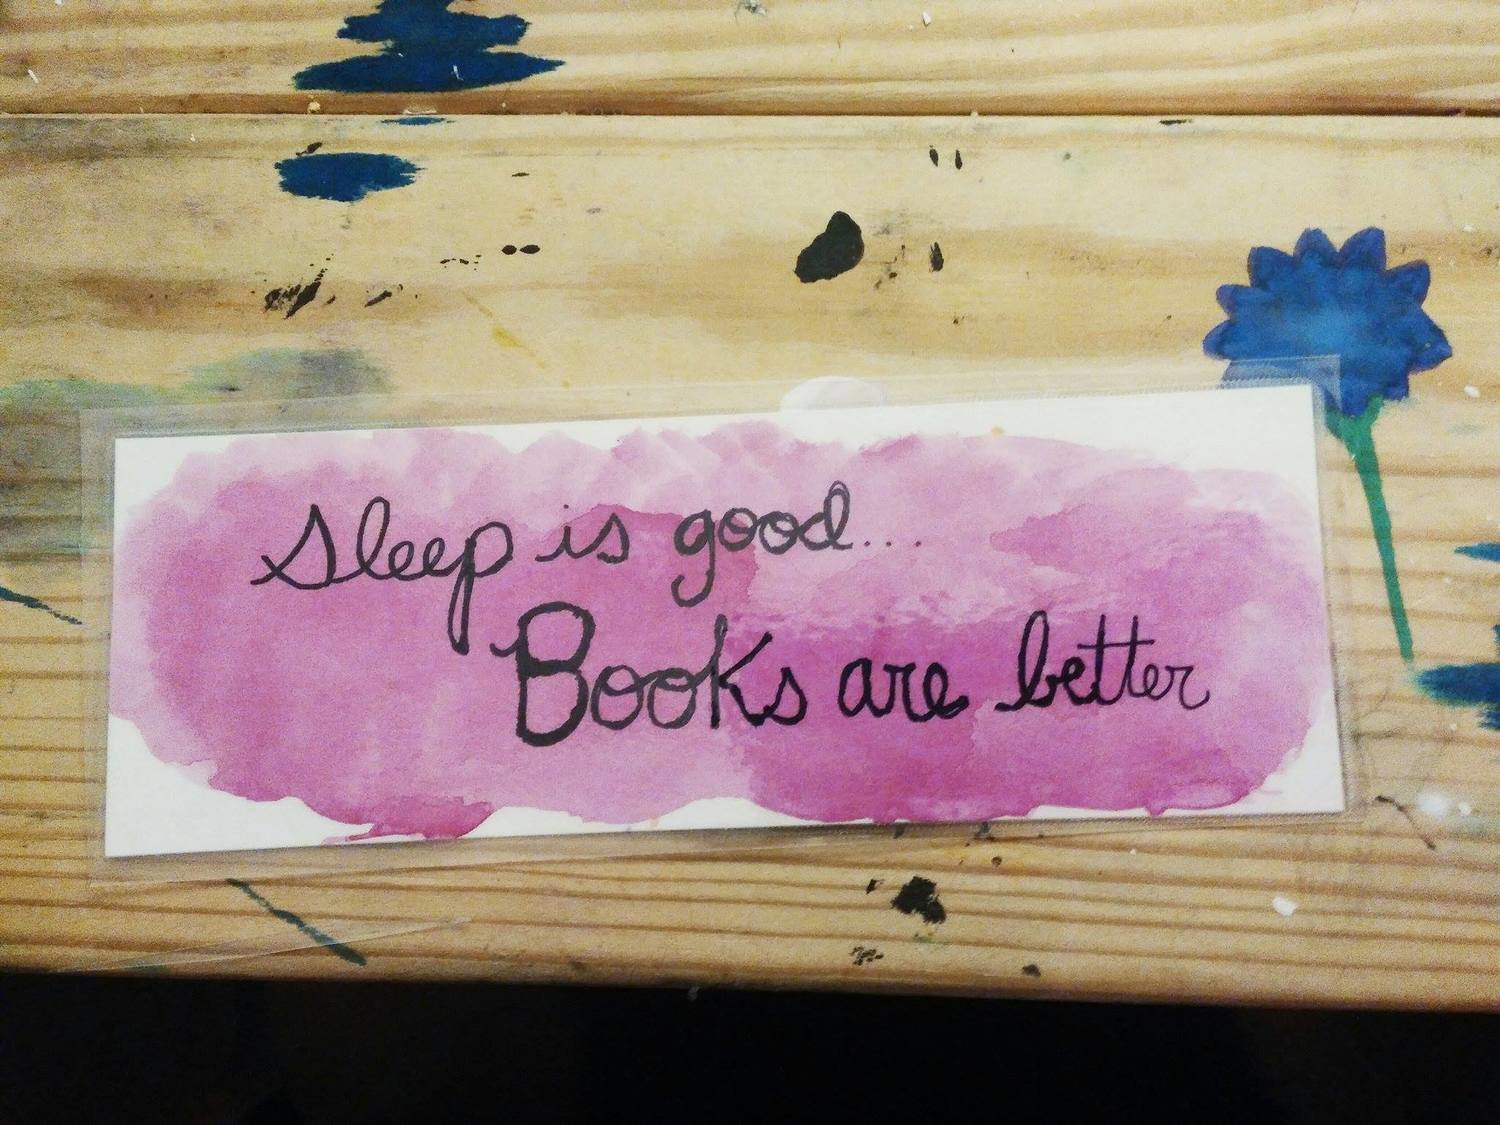 Sleep is good...
Books are better